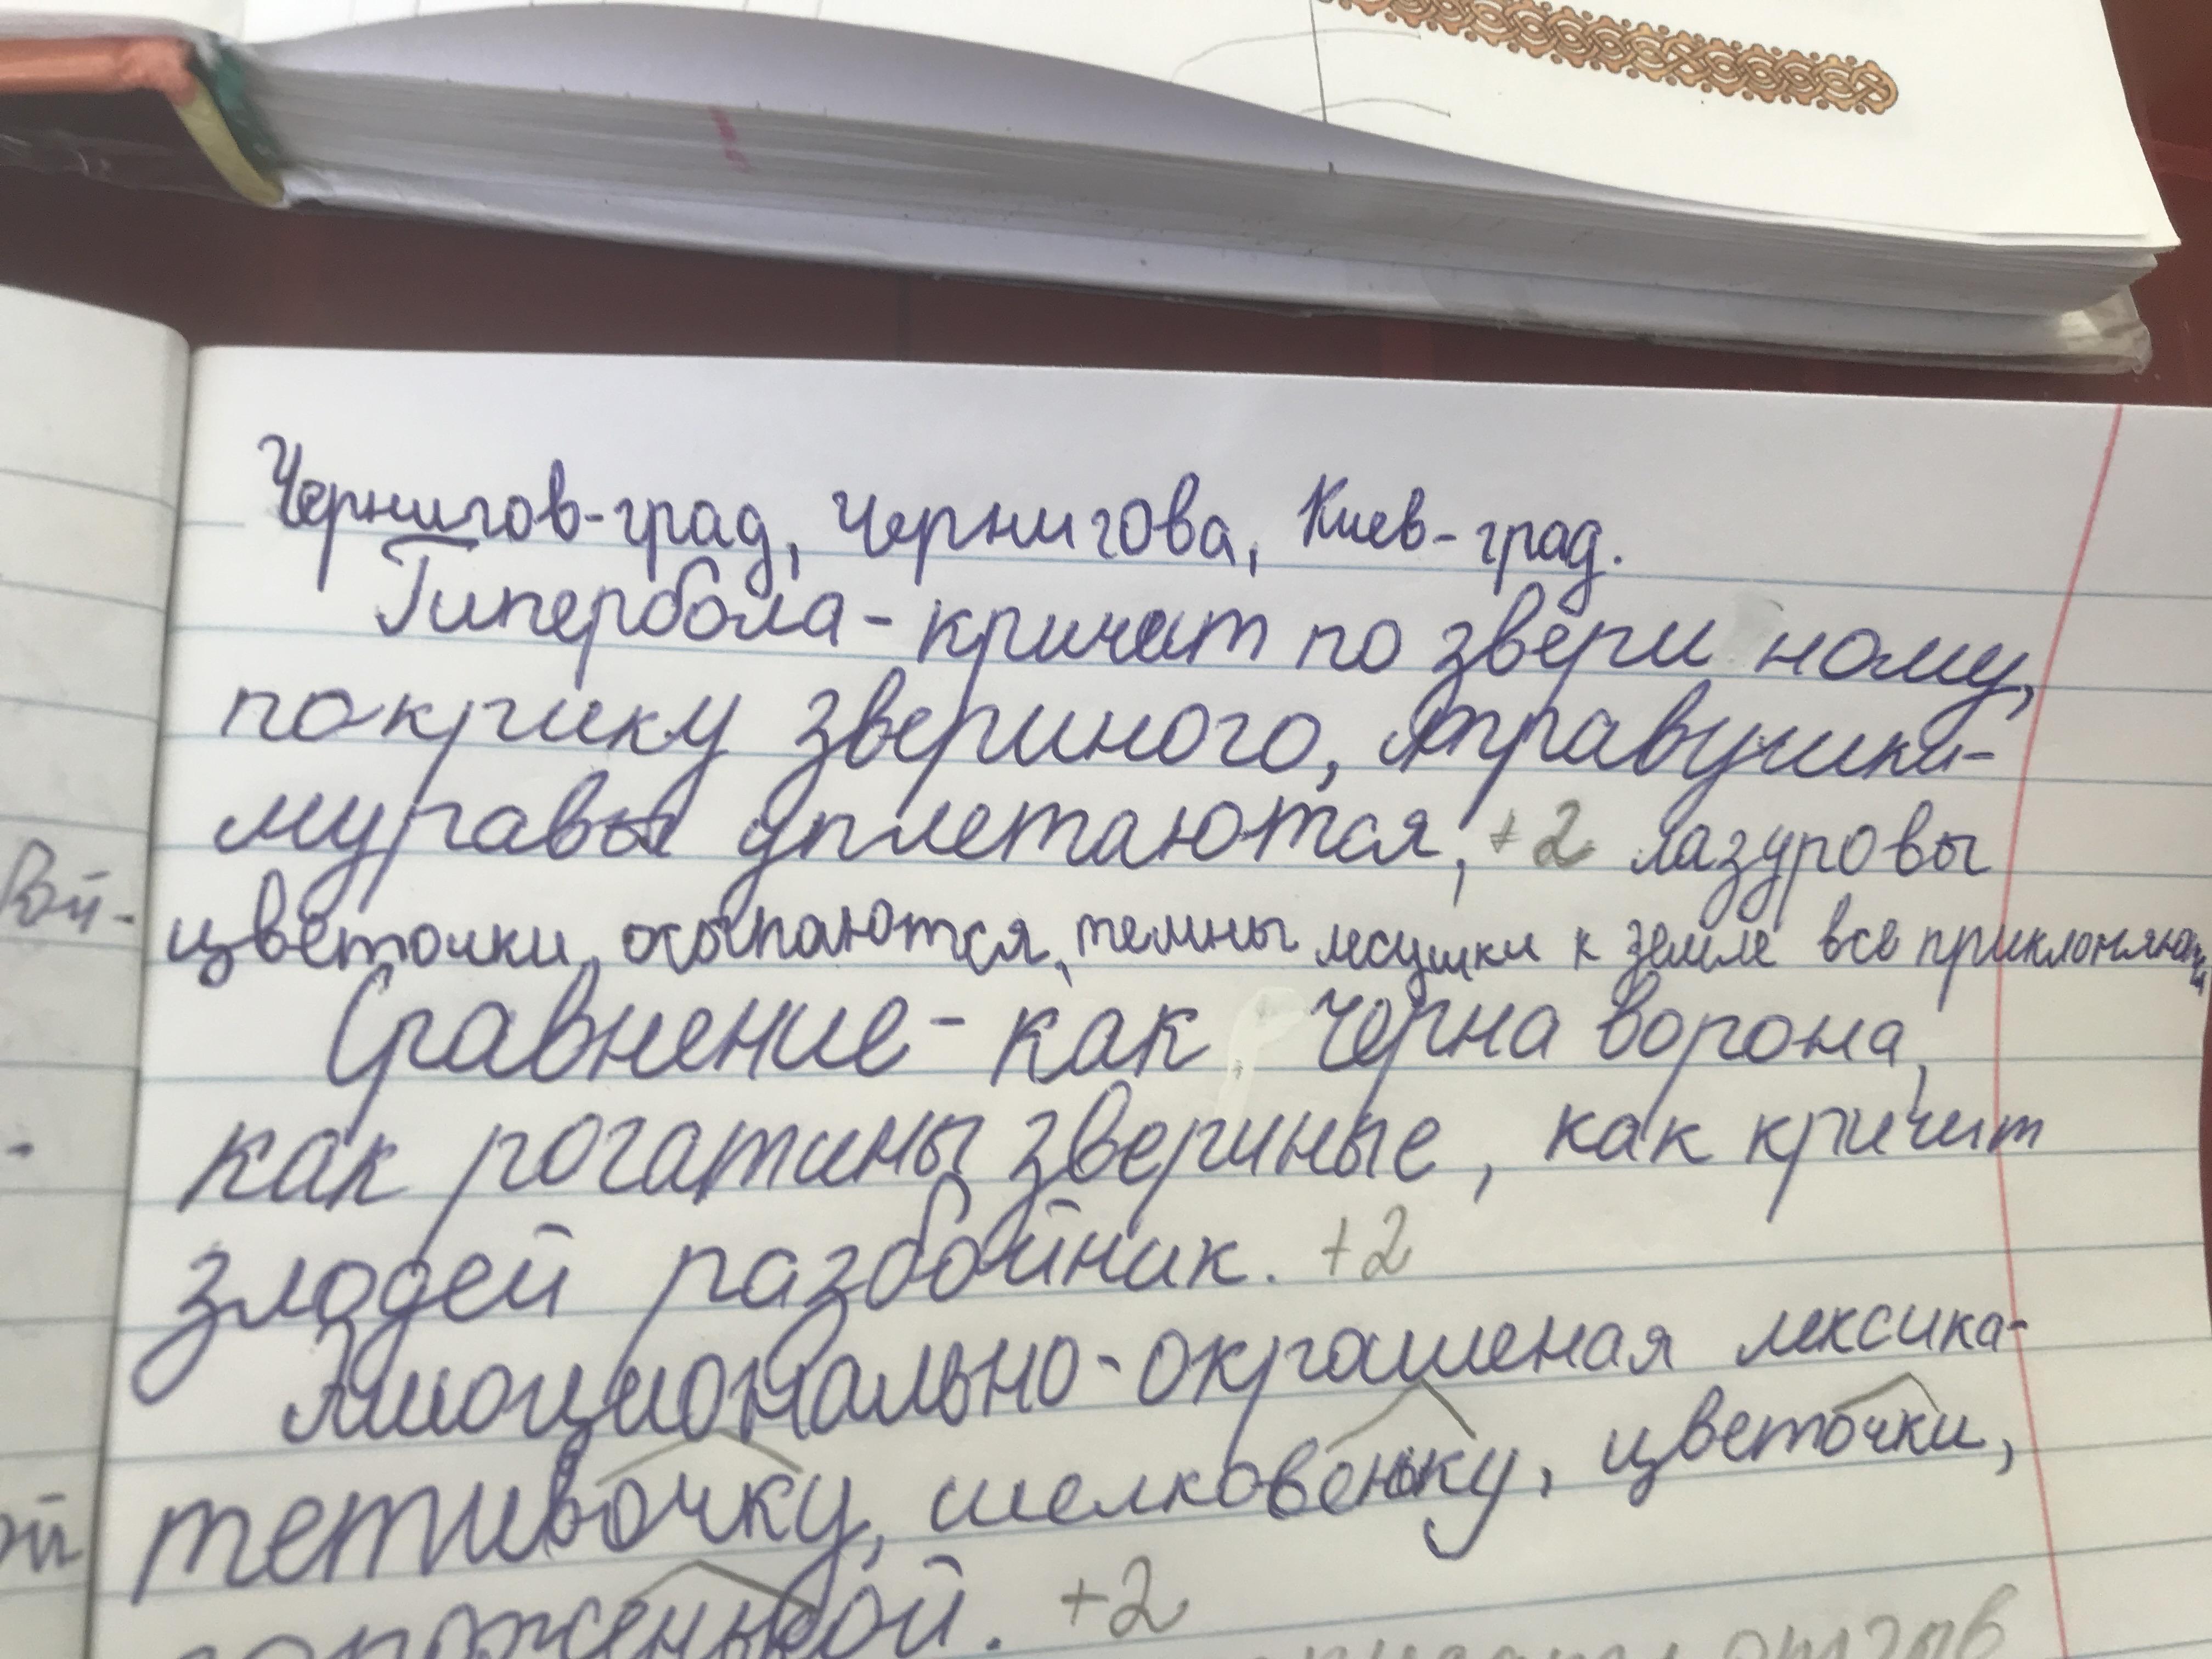 Чернигов-град, Чернигова, Киев-град.
Гипербола - кричит по звери ному,
покрику звериного, травушки-
муравы уплетаются, +2 лазуровы
цветочки, осыпаются, темны лесушки к земле все приклоняют
Сравнение - как черна ворона,
как рогатины звериные, как кричит
злодей разбойник. +2
Эмоционально-окрашеная лексика-
тетивочку, шелковеньку, цветочки,
+2